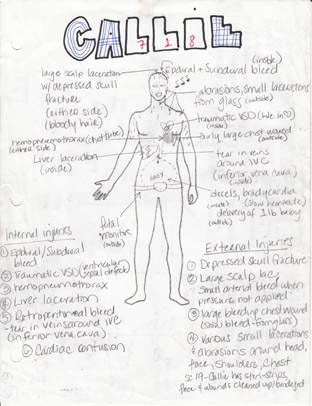 CALLIE
7 1 8
(inside)
Epidural + Subdural bleed
large scalp laceration
w/ depressed skull
fracture
(either side)
(bloody hair)
abrasions, small lacerations
from glass (outside)
traumatic VSD
(inside)
hemopneumothorax (chest tube)
(either side)
large chest wound
(outside)
Liver laceration
(inside)
tear in veins
around IVC
(inferior vena cava)
(inside)
BABY
decels, bradycardia
(inside) (slow heart rate)
delivery of 1 lb baby
(outside)
fetal
monitor
(outside)
Internal injuries
① Epidural/Subdural
bleed
② Traumatic VSD (ventricular
septal defect)
③ hemopneumothorax
④ Liver laceration
⑤ Retroperitoneal bleed
-tear in veins around IVC
(inferior vena cava)
⑥ Cardiac contusion
External Injuries
① Depressed skull fracture
② Large scalp lac,
small arterial bleed when
pressure not applied
③ Large bleeding chest wound
(slow bleed-from lungs)
④ Various small lacerations
& abrasions around head,
face, shoulders, chest
sc 19-Callie has steri-strips,
face & wounds cleaned up/bandaged